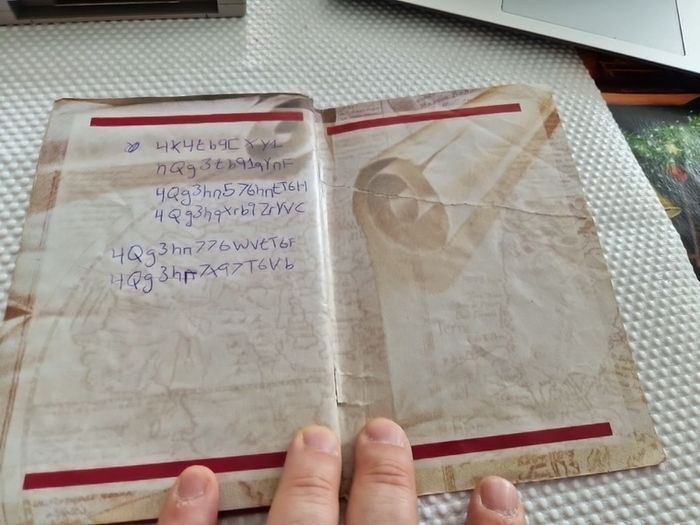 4K4tb9CXY1
nQg3tb91qYnF
4Qg3hn576hntT6H
4Qg3hqXrb9ZrYVC
4Qg3hn776WVtT6F
4Qg3hn7X97T6Vb